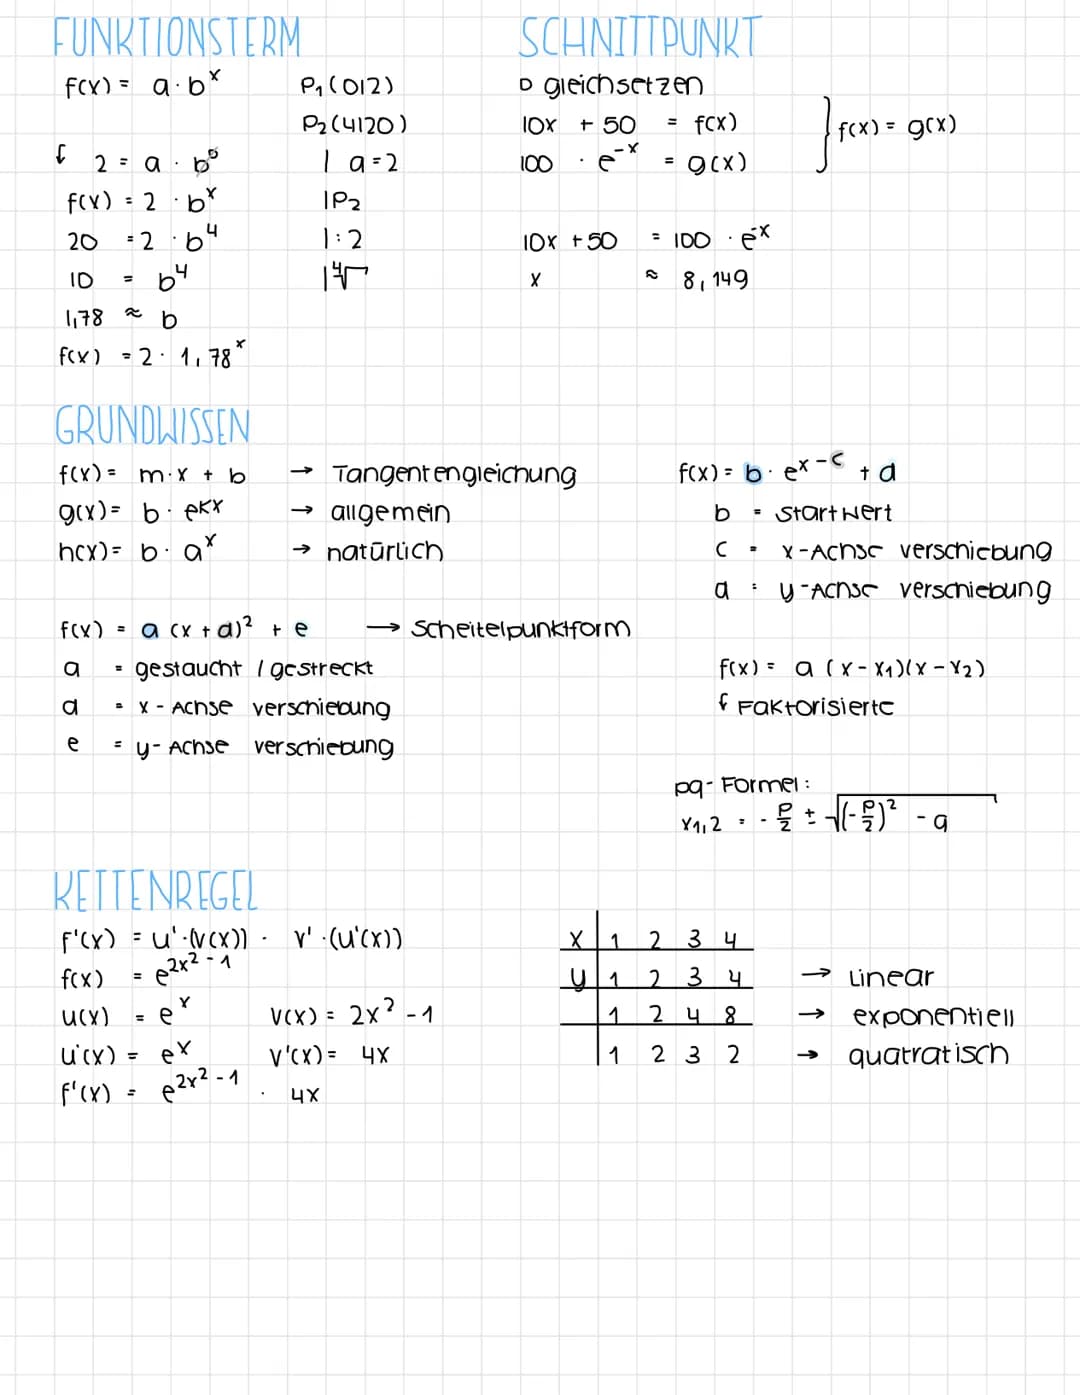 FUNKTIONSTERM
f(x) = a · b^x P₁(0|2)
P₂(4|20)
2 = a · b⁰ | a = 2
f(x) = 2 · b^x |P₂
20 = 2 · b⁴ | : 2
10 = b⁴ | ⁴√
1,78 ≈ b
f(x) = 2 · 1,78^x
SCHNITTPUNKT
gleichsetzen
10x + 50 = f(x)
100 · e^-x = g(x)
} f(x) = g(x)
10x + 50 = 100 · e^-x
x ≈ 8,149
GRUNDWISSEN
f(x) = m · x + b → Tangentengleichung
g(x) = b · e^kx → allgemein
h(x) = b · a^x → natürlich
f(x) = b · e^x-c + d
b = Startwert
c = x-Achse verschiebung
d = y-Achse verschiebung
f(x) = a (x + d)² + e → Scheitelpunktform
a = gestaucht / gestreckt
d = x - Achse verschiebung
e = y - Achse verschiebung
f(x) = a (x - x₁)(x - x₂)
Faktorisierte
pq - Formel :
x₁,₂ = - p/2 ± √(-p/2)² - q
KETTENREGEL
f'(x) = u' · (v(x)) · v' · (u'(x))
f(x) = e^2x² - 1
u(x) = e^x v(x) = 2x² - 1
u'(x) = e^x v'(x) = 4x
f'(x) = e^2x² - 1 · 4x
x | 1 2 3 4
y | 1 2 3 4 → Linear
| 1 2 4 8 → exponentiell
| 1 2 3 2 → quatratisch